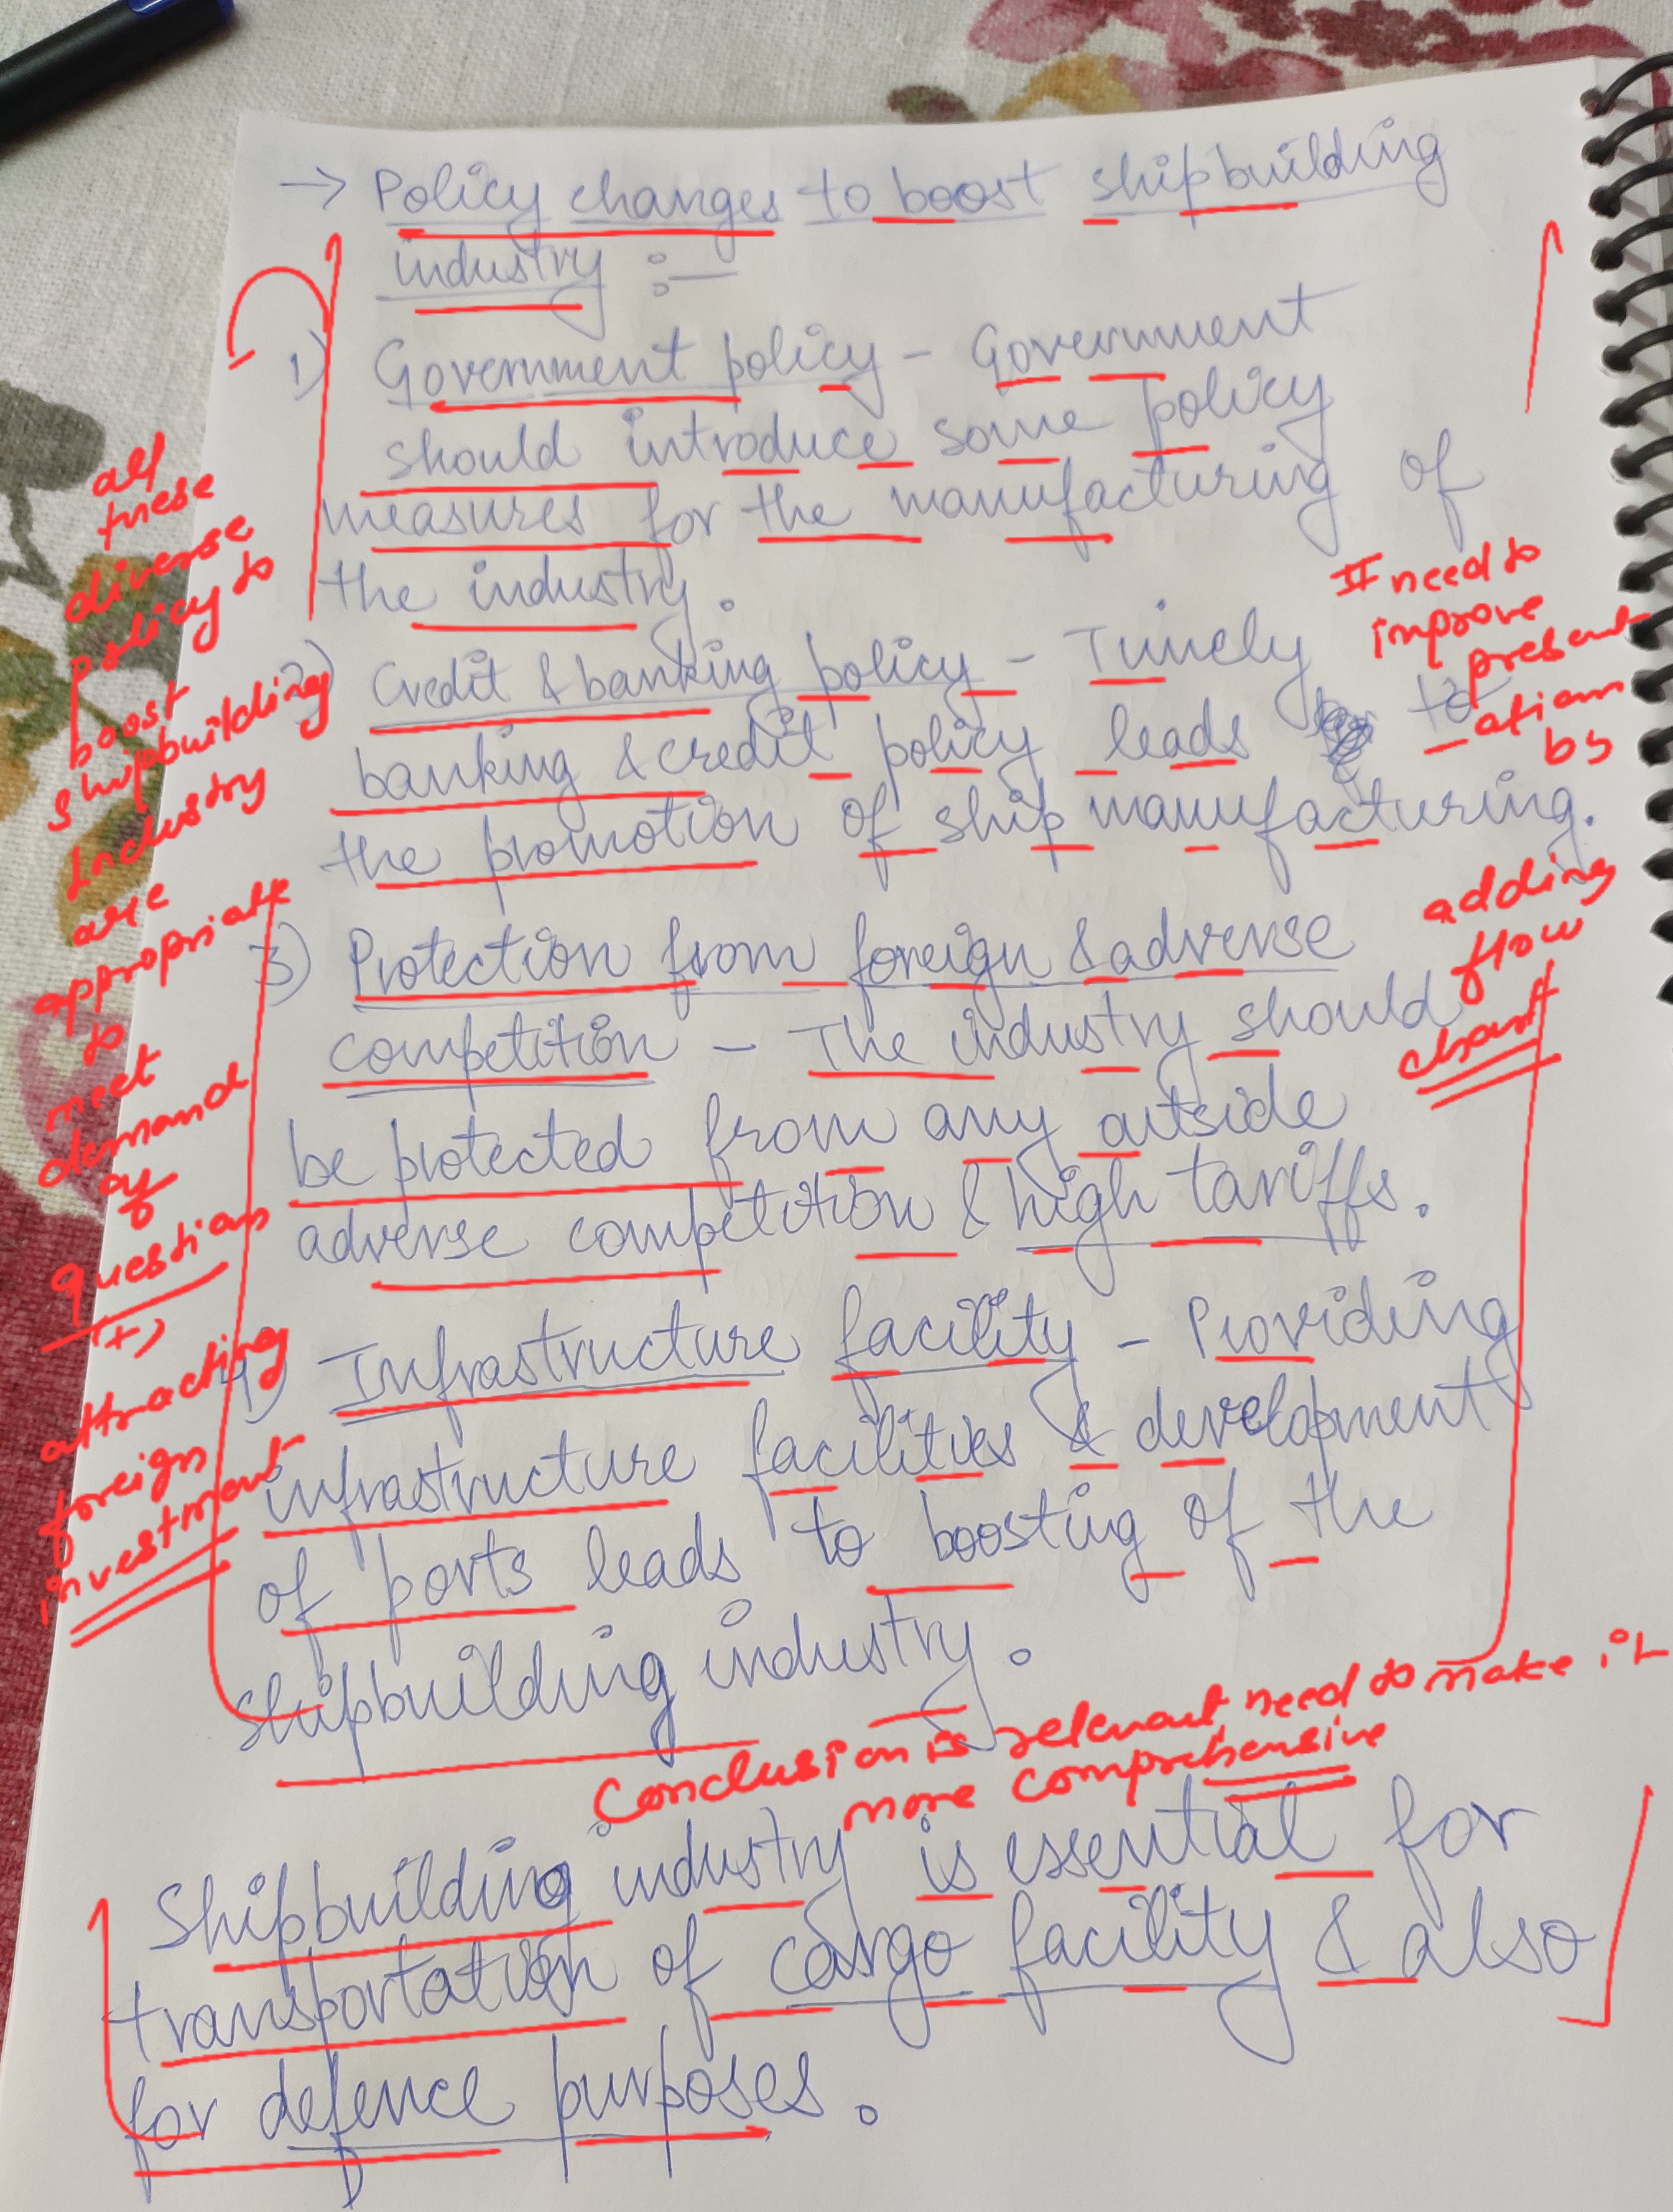 → Policy changes to boost shipbuilding
industry :-
1) Government policy - Government
should introduce some policy
measures for the manufacturing of
the industry.
2) Credit & banking policy - Timely
banking & credit policy leads to
the promotion of ship manufacturing.
3) Protection from foreign & adverse
competition - The industry should
be protected from any outside
adverse competition & high tariffs.
4) Infrastructure facility - Providing
infrastructure facilities & development
of ports leads to boosting of the
shipbuilding industry.
Shipbuilding industry is essential for
transportation of cargo facility & also
for defence purposes.
all
these
diverse
policy to
boost
shipbuilding
Industry
are
appropriate
to
meet
demand
of
question
(+)
attracting
foreign
investment
II need to
improve
present
ations
by
adding
flow
chart
Conclusion is relevant need to make it
more comprehensive